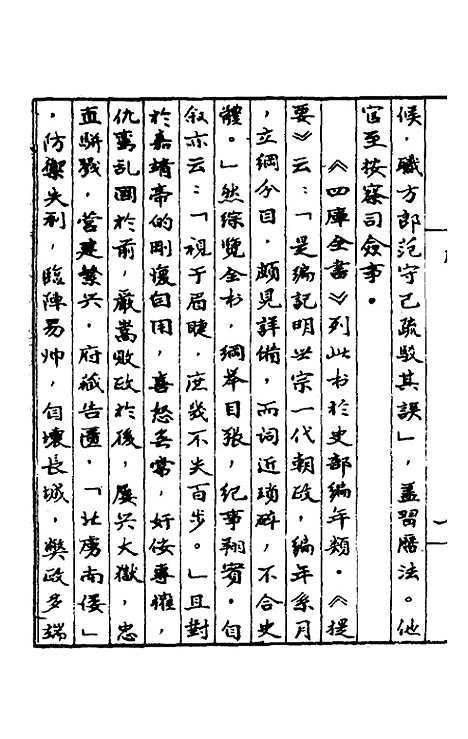 候，职方郎范守己疏驳其误」，盖習曆法。他
官至按察司佥事。
《四庫全書》列此书於史部编年類。《提
要》云：「是编記明世宗一代朝政，编年系月
，立綱分目，頗見詳備，而词近瑣碎，不合史
體。」然综览全书，綱举目張，纪事翔實。自
叙亦云：「視于眉睫，庶幾不失百步。」且對
於嘉靖帝的剛愎自用，喜怒無常，奸佞專權，
仇鸾乱国於前，嚴嵩败政於後，屡兴大獄，忠
直駢戮，营建繁兴，府藏告匱，「北虏南倭」
，防禦失利，臨陣易帅，自壞長城，弊政多端